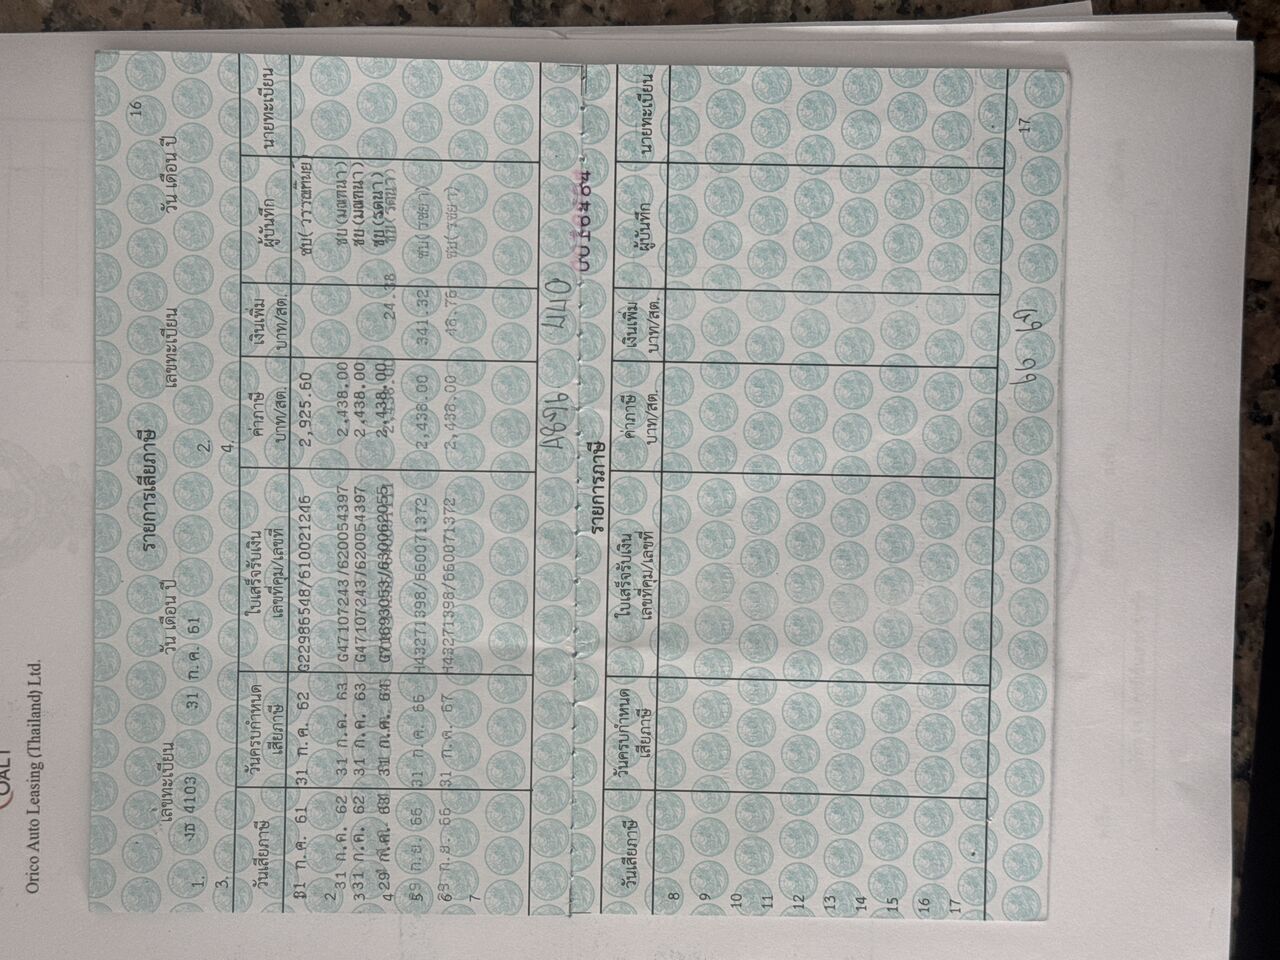 Orico Auto Leasing (Thailand) Ltd.
16
รายการเสียภาษี
เลขทะเบียน วัน เดือน ปี เลขทะเบียน วัน เดือน ปี
1. งธ 4103 31 ก.ค. 61 2.
3. 4.
วันเสียภาษี วันครบกำหนด เสียภาษี ใบเสร็จรับเงิน เลขที่คุม/เลขที่ ค่าภาษี บาท/สต. เงินเพิ่ม บาท/สต. ผู้บันทึก นายทะเบียน
31 ก.ค. 61 31 ก.ค. 62 G22986548/610021246 2,925.60
2 31 ก.ค. 62 31 ก.ค. 63 G47107243/620054397 2,438.00 ชบ(มณฑนา)
3 31 ก.ค. 62 31 ก.ค. 63 G47107243/620054397 2,438.00 ชบ(มณฑนา)
4 29 31 ก.ค. 64 2,438.00 24.38 ชบ(รตนา)
5 31 ก.ค. 66 H43271398/660071372 2,438.00 341.32
6 31 ก.ค. 67 H43271398/660071372 2,438.00 48.76
7
0016464
รายการภาษี
วันเสียภาษี วันครบกำหนด เสียภาษี ใบเสร็จรับเงิน เลขที่คุม/เลขที่ ค่าภาษี บาท/สต. เงินเพิ่ม บาท/สต. ผู้บันทึก นายทะเบียน
8
9
10
11
12
13
14
15
16
17
17